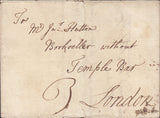 To
Mr Jas. Hatton
Bookseller without
Temple Bar
3 London